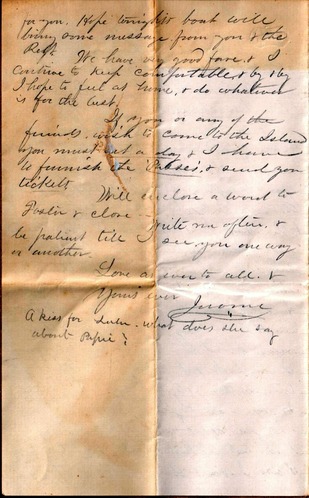 for you. Hope tonight's boat will
bring some message from you & the
Regt. We have very good fare, & I
contrive to keep comfortable, & by & by
I hope to feel at home, & do whatever
is for the best.
If you or any of the
friends, wish to come to the Island
you must set a day & I have
to furnish the 'Passes', & send you
tickets
Will enclose a word to
Foster & close -
Write me often, &
be patient till I see you one way
or another.
Love as ever to all. &
Yours ever
Jerome
A kiss for Lulu. what does she say
about Papie?